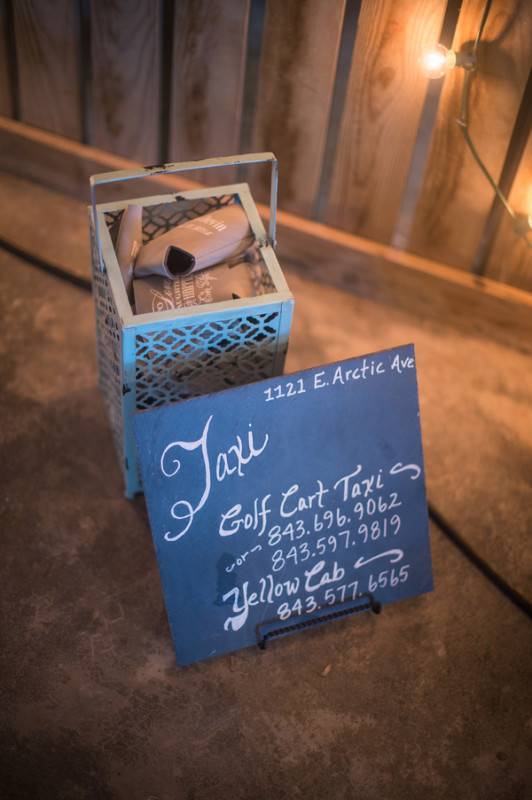 1121 E. Arctic Ave
Taxi
Golf Cart Taxi
843.696.9062
~or~ 843.597.9819
Yellow Cab
843.577.6565